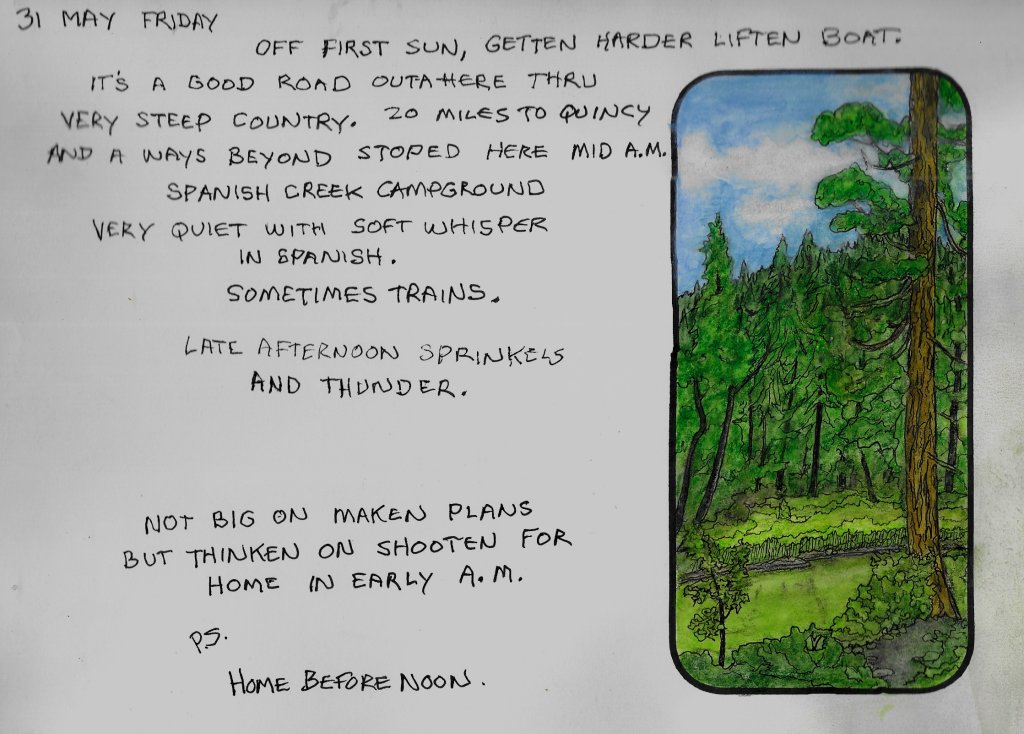 31 MAY FRIDAY
OFF FIRST SUN, GETTEN HARDER LIFTEN BOAT.
IT'S A GOOD ROAD OUTAHERE THRU
VERY STEEP COUNTRY. 20 MILES TO QUINCY
AND A WAYS BEYOND STOPED HERE MID A.M.
SPANISH CREEK CAMPGROUND
VERY QUIET WITH SOFT WHISPER
IN SPANISH.
SOMETIMES TRAINS.
LATE AFTERNOON SPRINKELS
AND THUNDER.
NOT BIG ON MAKEN PLANS
BUT THINKEN ON SHOOTEN FOR
HOME IN EARLY A.M.
P.S.
HOME BEFORE NOON.